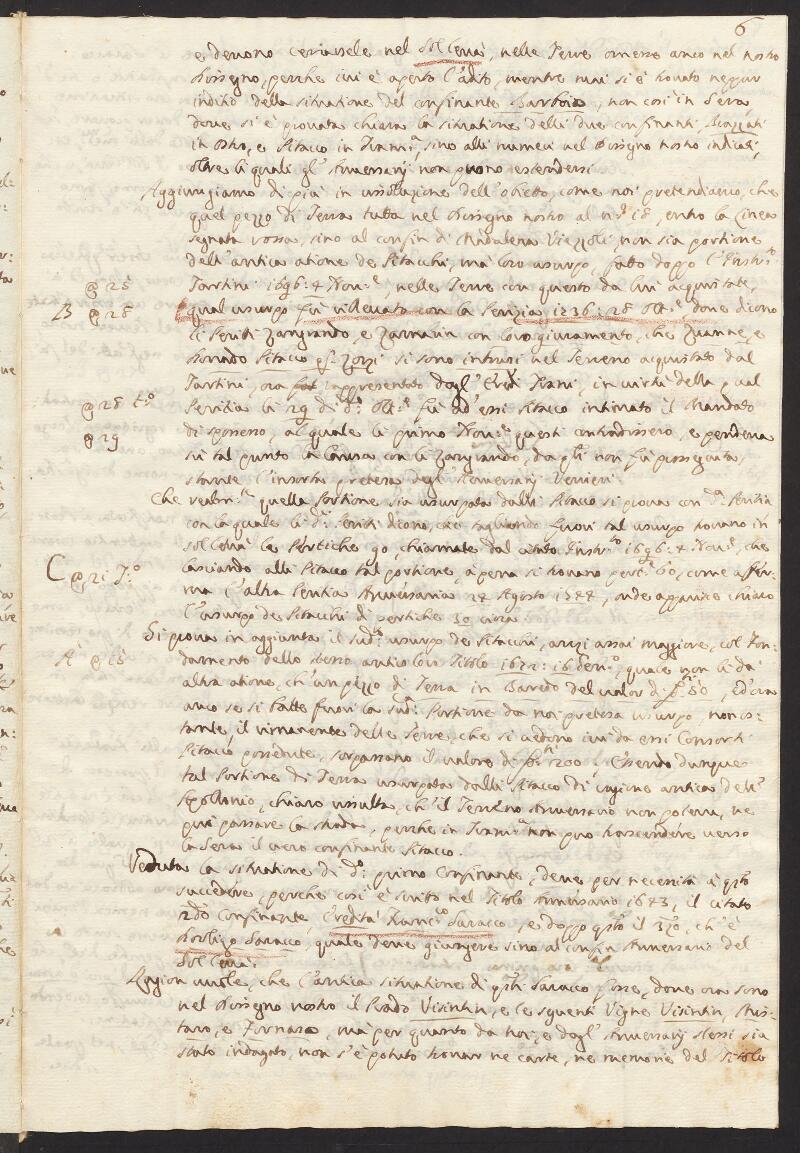 6
e devono cercarsele nel Sol Levà, nelle Terre omesse anco nel nostro
dissegno, perche ivi è aperto l'adito, mentre mai si è trovato neppur
indito della situatione del confinante Barboia, non così in Sera,
dove si è provata chiara la situatione delli due confinanti Brazzati
in Ostro, e Sitacco in Tram:ª, sino alli numeri nel dissegno nostro indicati,
oltre li quali gl' Aversarij non puono estendersi
Aggiungiamo di più in assolazione dell' obietto, come noi pretendiamo, che
quel pezzo di Terra tutta nel dissegno nostro al nº 18, entro la linea
segnata rossa, sino al confin di Madalena Viezzoli, non sia portione
dell' antica atione de Sitacchi, mà loro usurpo, fatto doppo l'Instr:º
@ 25 Tartini 1696: 4 Nov:e, nelle Terre con questo da lui acquistate,
B @ 28 qual usurpo fù rillevato con la Perizia 1736: 28 Ott:e dove dicono
li Periti Zangrando, e Zarnain con loro giuramento, che Zuanne, e
Corrado Sitacco q: Zorzi si sono intrusi nel terreno acquistato dal
Tartini, ora rappresentato dagl' Eredi Trani, in virtù della qual
@ 28 tº Peritia li 29 di dº Ott:e fù ad' essi Sitacco intimato il Mandato
@ 29 di spossesso, al quale li primo Nov:e questi contradissero, e pendeva
sù tal punto la Causa con li Zangrando, da gli non fù proseguita,
stante l'insorta pretesa degl' Aversarij Vernieri
Che realm:te quella Portione sia usurpata dalli Sitacco si prova con dª Peritia
con la quale li di Periti dicono, che tagliando fuori tal usurpo trovano in
Sol Levà le Pertiche 90, chiamate dal citato Instr:to 1696: 4 Nov:e, che
C @ 21 Tº lasciando alli Sitacco tal portione, apena si trovano pert:e 60, come affer-
ma l'altra Peritia Aversaria 24 Agosto 1744, onde apparisce chiaro
l'usurpo de Sitacchi di pertiche 30 circa
Si prova in aggiunta il sudº usurpo de Sitacchi, anzi assai maggiore, col fon-
A @ 15 damento dello stesso antico loro Titolo 1672: 16 Gen:º, quale non li dà
altra atione, ch' un pezzo di Terra in Baredo del valor di 50, ed'ora
anco se si batte fuori la sudª Portione da noi pretesa usurpo, non os-
tante, il rimanente delle Terre, che si vedono ivi da essi Consorti
Sitacco possedute, sorpassano il valore di 200. Essendo dunque
tal Portione di Terra usurpata dalli Sitacco di ragione antica dell'
Apollonio, chiaro risulta, ch' il Terreno Aversario non poteva, ne
può passare la strada, perche in Tram:ª non può trascendere verso
la Sera il vero confinante Sitacco.
Veduta la situatione di dº primo Confinante, deve per necessità à qto
succedere, perche così è scritto nel Titolo Aversario 1643, il citato
2do Confinante Eredità Franc:º Saracco, e doppo qto il 3zo, ch' è
Rodrigo Saracco, quale deve giungere sino al confin Aversario del
Sol Levà.
Ragion vuole, che l'antica situatione di qti Saracco fosse, dove ora sono
nel dissegno nostro il Prado Visintin, e le seguenti Vigne Visintin, Aus-
tano, e Fornasa, mà per quanto da noi, e dagl' Aversarij stessi sia
stato indagato, non s'è potuto trovar ne carte, ne memorie del Titolo